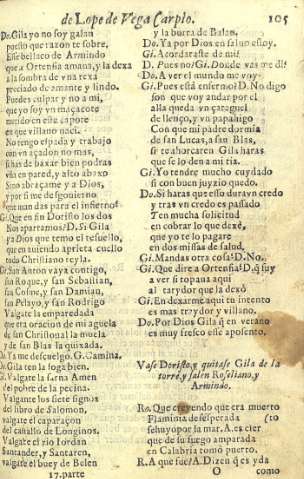 de Lope de Vega Carpio. 105
Do. Gila yo no soy galan
puesto que razon te sobre,
Esse bellaco de Armindo
que a Ortensia amaua, y la dexa
a la sombra de vna rexa
preciado de amante y lindo.
Puedes culpar y no a mi,
que yo soy vn macacote
metido en este capote
es que villano naci.
No tengo espada y trabajo
con vn açadon no mas,
sinas de baxar bien podras
via en pared, y alto abaxo
Sino abraçame y a Dios,
y por si me desgouierno
que iran das para el infierno?
Gi. Que en fin Doristo los dos
Nos apartamos? D. Si Gila
y a Dios que temo el resuello,
que en auiendo aprieta cuello
todo Christiano reyla.
Gi. San Anton vaya contigo,
san Roque, y san Sebastian,
san Cosme, y san Damian,
san Pelayo, y san Rodrigo
Valgate la emparedada
que era oracion de mi aguela
de san Christoual la muela
de san Blas la quixada,
D. Ya me descuelgo. G. Camina.
D. Gila ten la soga bien.
G. Valgate la sarna Amen
el pobre de la pecina.
Valgante los siete signos
del libro de Salomon,
valgate el caparaçon
del cauallo de Longinos.
Valgate el rio Iordan
Santander, y Santaren,
valgate el buey de Belen
17. parte
y la burra de Balan.
Do. Ya por Dios en saluo estoy.
Gi. Acordaraste de mi?
D. Pues no? Gi. Donde vas me di?
Do. A ver el mundo me voy
Gi. Pues està enfermo? D. No digo
son que voy andar por el
alla queda vn çaraguel
de lienço, y vn papahigo
Con que mi padre dormia
de san Lucas, a san Blas,
si te ahorcaren Gila haras
que se lo den a mi tia.
Gi. Yo tendre mucho cuydado
si con buen juyzio quedo.
Do. Si haras que esso dura vn credo
y tras vn credo es passado
Ten mucha solicitud
en cobrar lo que dexè,
que yo te lo pagare
en dos missas de salud,
Gi. Mandas otra cosa? D. No,
Gi. Que dire a Ortensia? D. q̃ soy
a ver si topaua aqui
al traydor que la dexò
Gi. En dexarme aqui tu intento
es mas traydor y villano,
Do. Por Dios Gila q̃ en verano
es muy fresco este aposento.
Vase Doristo, y quitase Gila de la
torre, y salen Roseliano, y
Armindo.
Ro. Que creyendo que era muerto
Flaminia desesperada (to
se huyo por la mar. A. es cier
que de su fuego amparada
en Calabria tomò puerto,
R. A que fue? A. Dizen q̃ es yda
O como